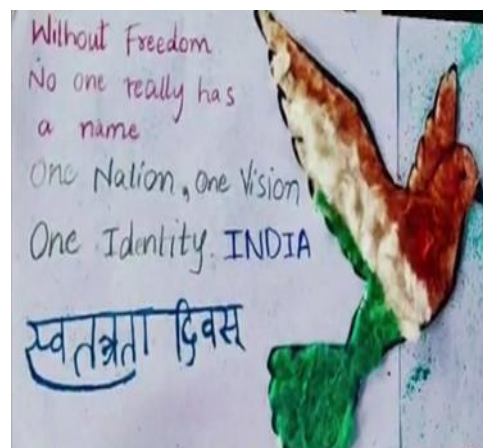 Without Freedom
No one really has
a name
One Nation, One Vision
One Identity. INDIA
स्वतंत्रता दिवस